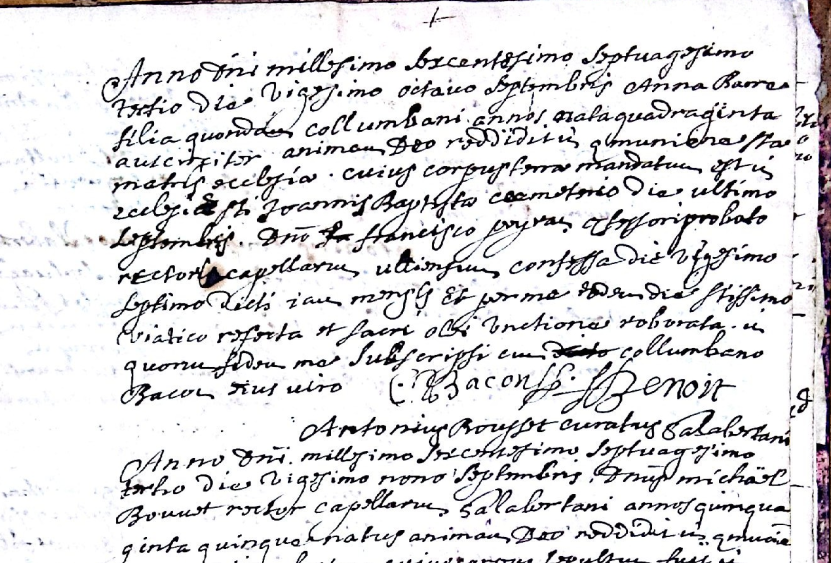 Anno Dñi millesimo sexcentesimo septuagesimo
tertio die vigesimo octavo septembris Anna Barre
filia quondam collumbani annos nata quadraginta
aut circiter animam Deo reddidit in qmunione stæ
matris ecclesiæ. cuius corpus terræ mandatum est in
ecclesiæ sti Joannis Baptistæ cœmeterio die ultimo
septembris. Dño francisco peyra qfessori probato
rectori capellarum ultiensium confessa die vigesimo
septimo dicti iam mensis Et per me eodem die stissimo
viatico refecta et sacri olei unctione roborata. in
quorum fidem me subscripsi cum collumbano
Bacon eius viro C: Bacon Benoit
Antonius Rousset curatus Salabertani
Anno Dñi millesimo sexcentesimo septuagesimo
tertio die vigesimo nono septembris Dnus michael
Bouvet rector capellarum Salabertani annos quinqua
ginta quinque natus animam Deo reddidit in qmunione